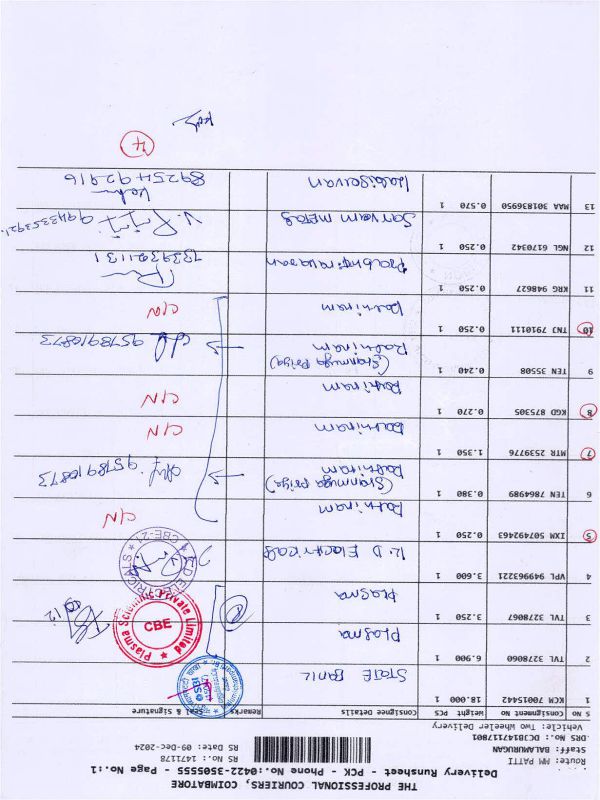 THE PROFESSIONAL COURIERS, COIMBATORE
Delivery Runsheet - PCK - Phone No.:0422-3505555 - Page No.:1
Route: MM PATTI
Staff: BALAMURUGAN
DRS No.: DCB147117801
Vehicle: Two Wheeler Delivery
RS No.: 1471178
RS Date: 09-Dec-2024
S N O Consignment No Weight PCS Consignee Details Remarks Seal & Signature
1 KCM 70015442 18.000 1 STATE BANK
2 TVL 3278060 6.900 1 Plasma
3 TVL 3278067 3.250 1 Plasma
Plasma Scientific Private Limited
CBE
4 VPL 949963221 3.600 1 K.D Electricals
K.D ELECTRICALS CBE-21
5 IXM 507492463 0.250 1 Rathinam C/N
6 TEN 7864989 0.380 1 Rathinam
(Shanmuga Priya) 9578910873
7 MTR 2539776 1.350 1 Rathinam C/N
8 KGD 875305 0.270 1 Rathinam C/N
9 TEN 35508 0.240 1 Rathinam
(Shanmuga Priya) 9578910873
10 TNJ 7910111 0.250 1 Rathinam C/N
11 KRG 948627 0.250 1 7339301131
12 NGL 6170342 0.250 1 Sarvam metals
13 MAA 301836950 0.570 1 Kabiservan 8925492916
4